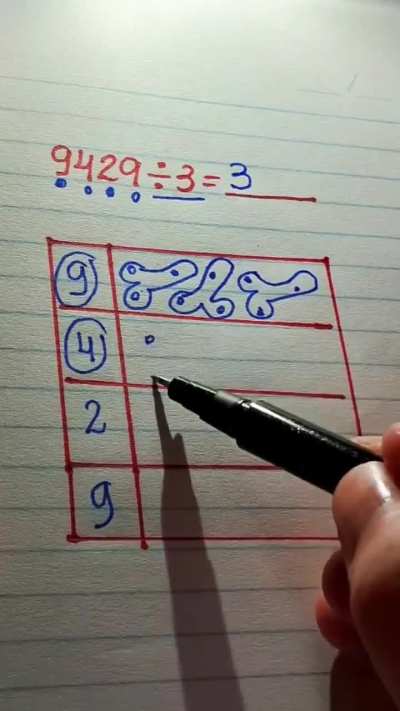 9429÷3=3
9
4
2
9